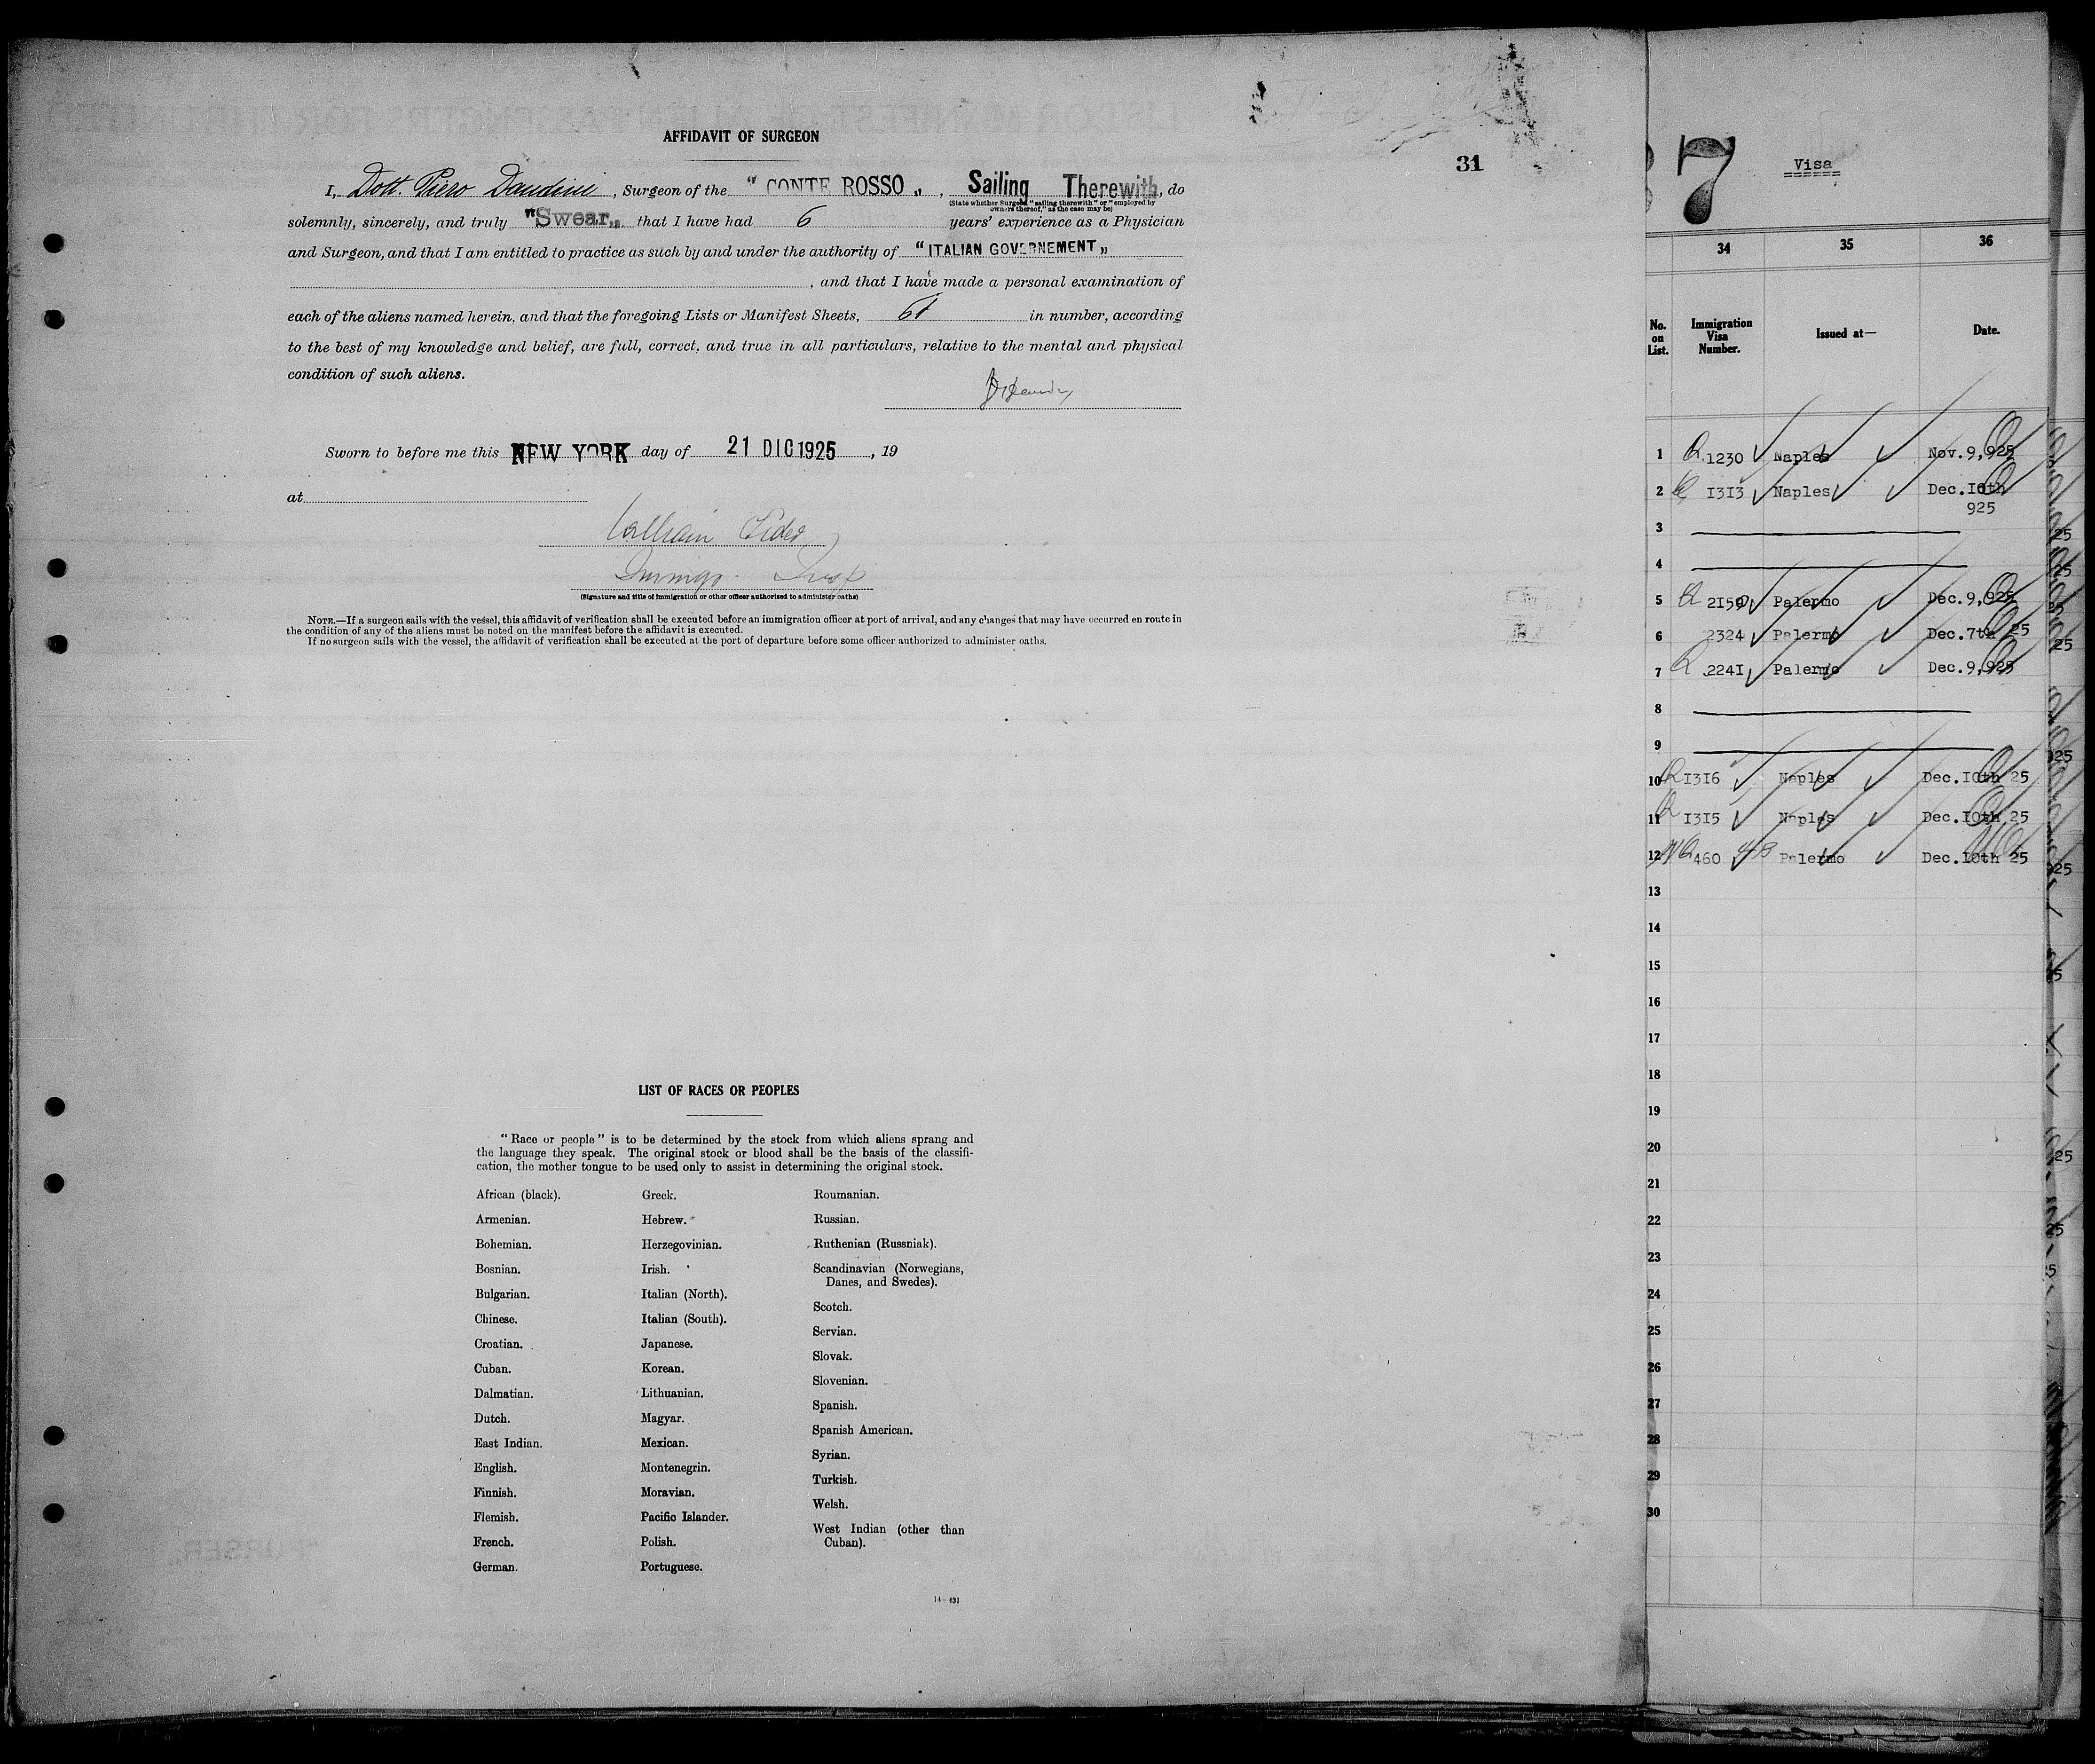 AFFIDAVIT OF SURGEON
31
I, Dott. Piero Dandini, Surgeon of the " CONTE ROSSO „, Sailing Therewith, do
(State whether Surgeon "sailing therewith" or "employed by owners thereof," as the case may be)
solemnly, sincerely, and truly "Swear„ that I have had 6 years' experience as a Physician
and Surgeon, and that I am entitled to practice as such by and under the authority of "ITALIAN GOVERNEMENT„
, and that I have made a personal examination of
each of the aliens named herein, and that the foregoing Lists or Manifest Sheets, 61 in number, according
to the best of my knowledge and belief, are full, correct, and true in all particulars, relative to the mental and physical
condition of such aliens.
Sworn to before me this NEW YORK day of 21 DIC 1925, 19
at
William
Immigr. Insp
(Signature and title of immigration or other officer authorized to administer oaths)
NOTE.—If a surgeon sails with the vessel, this affidavit of verification shall be executed before an immigration officer at port of arrival, and any changes that may have occurred en route in
the condition of any of the aliens must be noted on the manifest before the affidavit is executed.
If no surgeon sails with the vessel, the affidavit of verification shall be executed at the port of departure before some officer authorized to administer oaths.
LIST OF RACES OR PEOPLES
"Race or people" is to be determined by the stock from which aliens sprang and
the language they speak. The original stock or blood shall be the basis of the classifi-
cation, the mother tongue to be used only to assist in determining the original stock.
African (black).
Armenian.
Bohemian.
Bosnian.
Bulgarian.
Chinese.
Croatian.
Cuban.
Dalmatian.
Dutch.
East Indian.
English.
Finnish.
Flemish.
French.
German.
Greek.
Hebrew.
Herzegovinian.
Irish.
Italian (North).
Italian (South).
Japanese.
Korean.
Lithuanian.
Magyar.
Mexican.
Montenegrin.
Moravian.
Pacific Islander.
Polish.
Portuguese.
Roumanian.
Russian.
Ruthenian (Russniak).
Scandinavian (Norwegians,
Danes, and Swedes).
Scotch.
Servian.
Slovak.
Slovenian.
Spanish.
Spanish American.
Syrian.
Turkish.
Welsh.
West Indian (other than
Cuban).
14—431
7
Visa
34 35 36
No. on List. Immigration Visa Number. Issued at— Date.
1 Q 1230 Naples Nov. 9,925
2 Q 1313 Naples Dec. 10th
925
3
4
5 Q 2159 Palermo Dec. 9,925
6 2324 Palermo Dec. 7th 25
7 Q 2241 Palermo Dec. 9,925
8
9
10 Q 1316 Naples Dec. 10th 25
11 Q 1315 Naples Dec. 10th 25
12 NQ 460 Palermo Dec. 10th 25
13
14
15
16
17
18
19
20
21
22
23
24
25
26
27
28
29
30